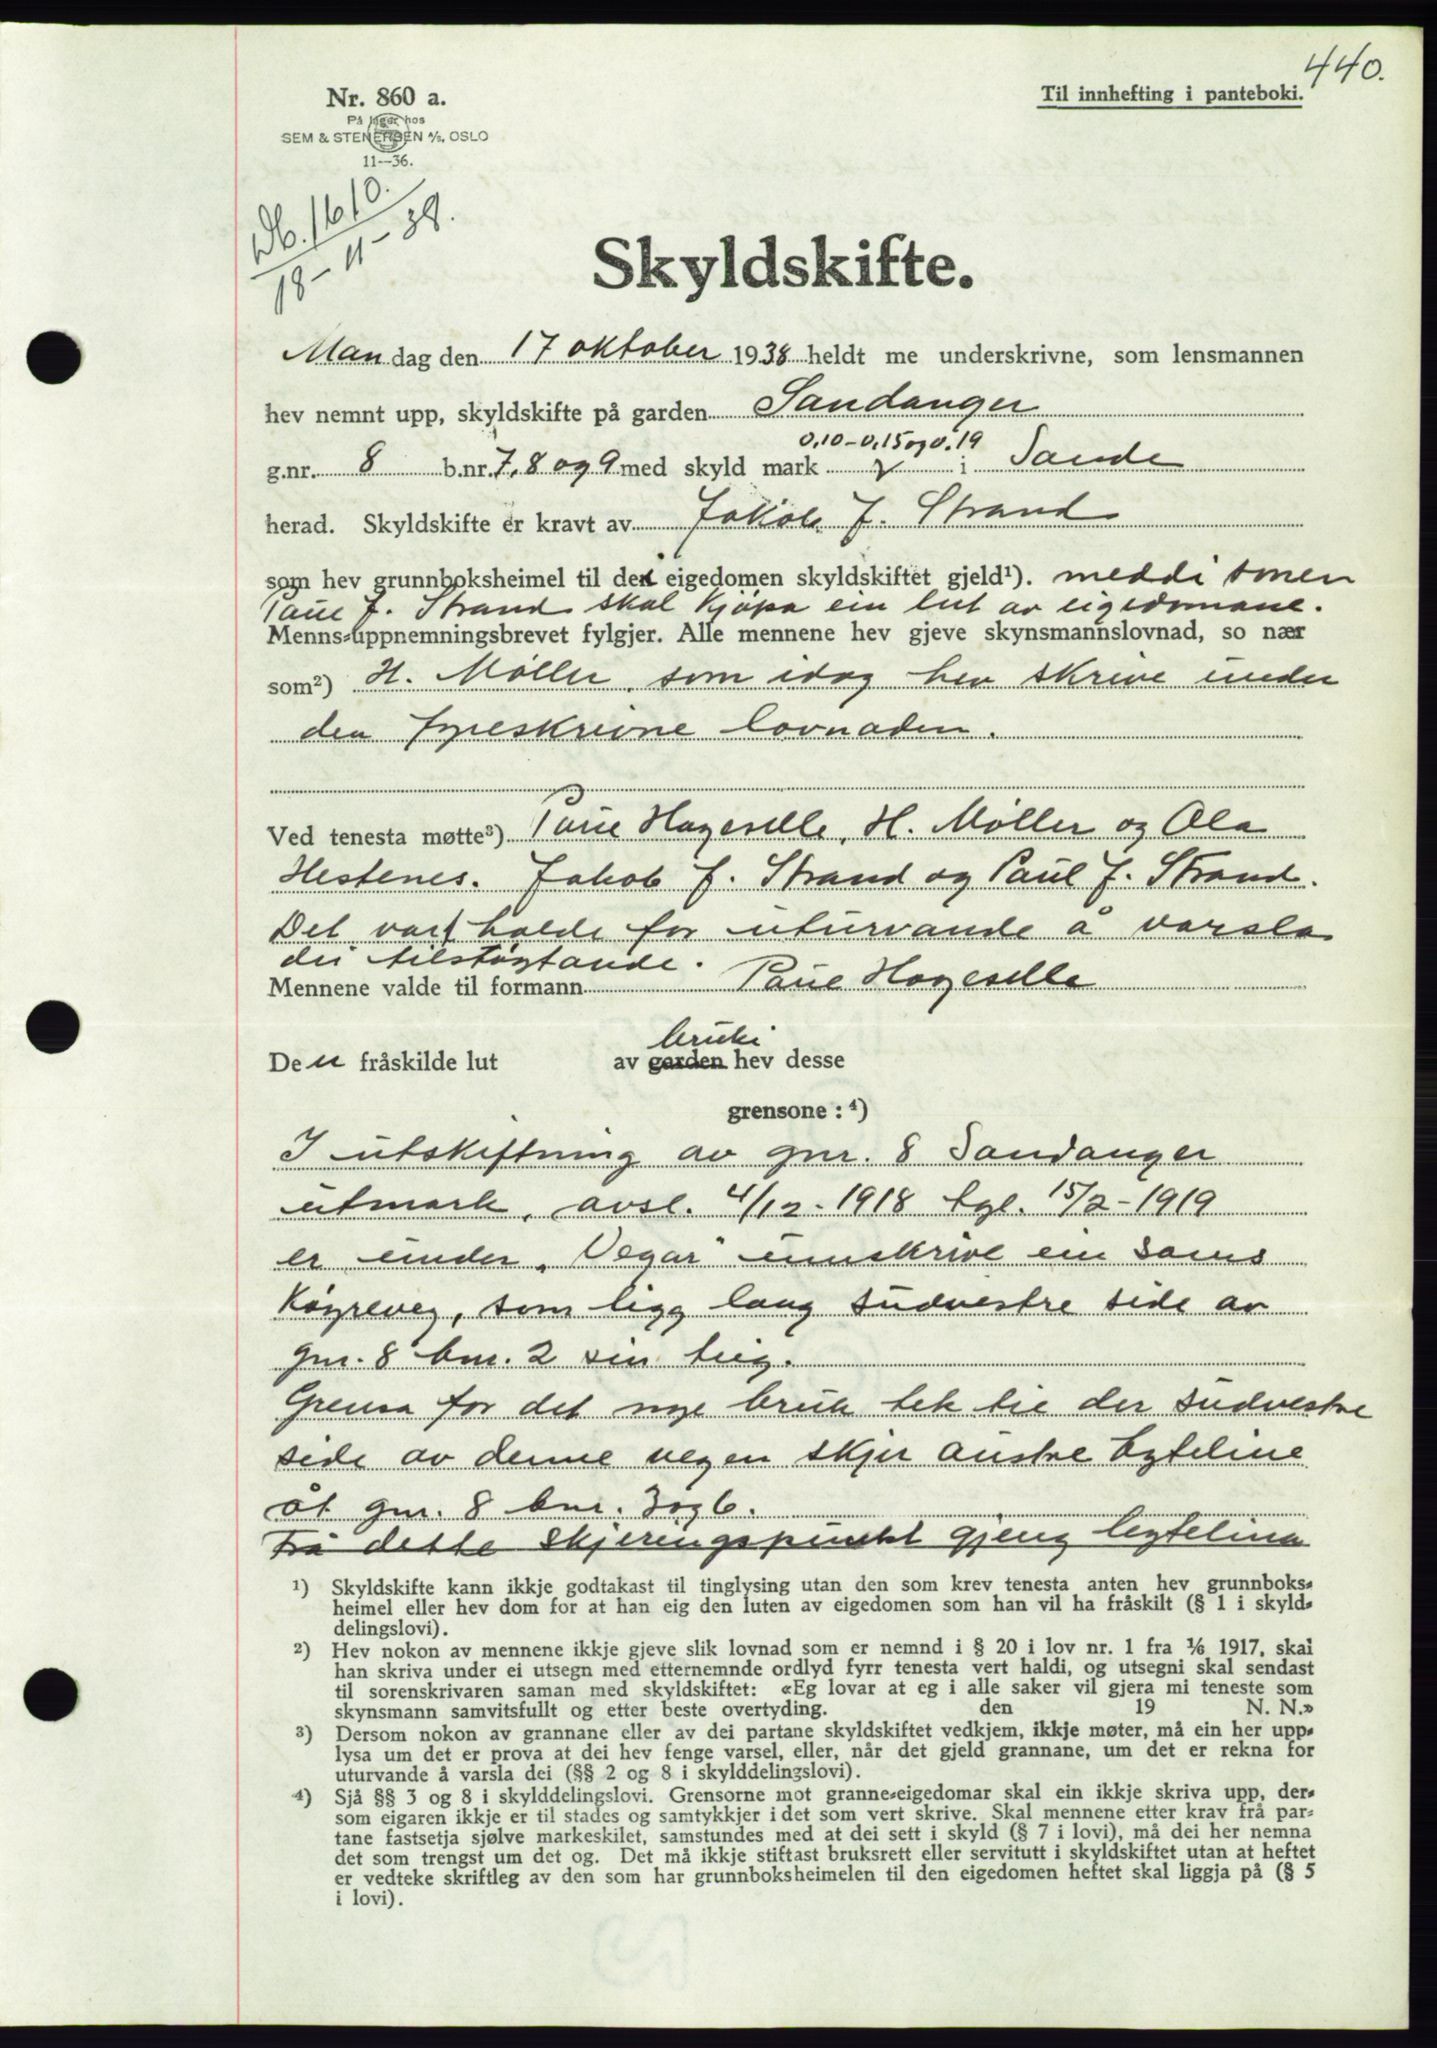 440.
Nr. 860 a.
Til innhefting i panteboki.
På lager hos
SEM & STENERSEN A/S, OSLO
11—36.
Db. 1610.
18-11-38.
Skyldskifte.
Man dag den 17 oktober 1938 heldt me underskrivne, som lensmannen
hev nemnt upp, skyldskifte på garden Sandanger
0,10-0,15 og 0.19
g.nr. 8 b.nr. 7, 8 og 9 med skyld mark i Sande
herad. Skyldskifte er kravt av Jakob J. Strand
som hev grunnboksheimel til dei eigedomen skyldskiftet gjeld¹). meddi sonen
Paul J. Strand skal kjøpa ein lut av eigedomane.
Menns=uppnemningsbrevet fylgjer. Alle mennene hev gjeve skynsmannslovnad, so nær
som²) H. Møller, som idag hev skrive under
den fyreskrivne lovnaden.
Ved tenesta møtte³) Paul Hageselle, H. Møller og Ola
Hestenes. Jakob J. Strand og Paul J. Strand.
Det vart halde for uturvande å varsla
dei tilstøytande.
Mennene valde til formann Paul Hageselle
bruki
De n fråskilde lut av garden hev desse
grensone : ⁴)
I utskiftning av gnr. 8 Sandanger
utmark, avsl. 4/12-1918 tgl. 15/2-1919
er under „Vegar" innskrive ein sams
køyreveg, som ligg lang sudvestre side av
gnr. 8 bnr. 2 sin teig.
Grensa for det nye bruk tek til der sudvestre
side av denne vegen skjer austre byteline
åt gnr. 8 bnr. 3 og 6.
Frå dette skjeringspunkt gjeng bytelina
¹) Skyldskifte kann ikkje godtakast til tinglysing utan den som krev tenesta anten hev grunnboks=
heimel eller hev dom for at han eig den luten av eigedomen som han vil ha fråskilt (§ 1 i skyld=
delingslovi).
²) Hev nokon av mennene ikkje gjeve slik lovnad som er nemnd i § 20 i lov nr. 1 fra 1/6 1917, skal
han skriva under ei utsegn med etternemnde ordlyd fyrr tenesta vert haldi, og utsegni skal sendast
til sorenskrivaren saman med skyldskiftet: «Eg lovar at eg i alle saker vil gjera mi teneste som
skynsmann samvitsfullt og etter beste overtyding. den 19 N. N.»
³) Dersom nokon av grannane eller av dei partane skyldskiftet vedkjem, ikkje møter, må ein her upp=
lysa um det er prova at dei hev fenge varsel, eller, når det gjeld grannane, um det er rekna for
uturvande å varsla dei (§§ 2 og 8 i skylddelingslovi).
⁴) Sjå §§ 3 og 8 i skylddelingslovi. Grensorne mot granne=eigedomar skal ein ikkje skriva upp, der=
som eigaren ikkje er til stades og samtykkjer i det som vert skrive. Skal mennene etter krav frå par=
tane fastsetja sjølve markeskilet, samstundes med at dei sett i skyld (§ 7 i lovi), må dei her nemna
det som trengst um det og. Det må ikkje stiftast bruksrett eller servitutt i skyldskiftet utan at heftet
er vedteke skriftleg av den som har grunnboksheimelen til den eigedomen heftet skal liggja på (§ 5
i lovi).